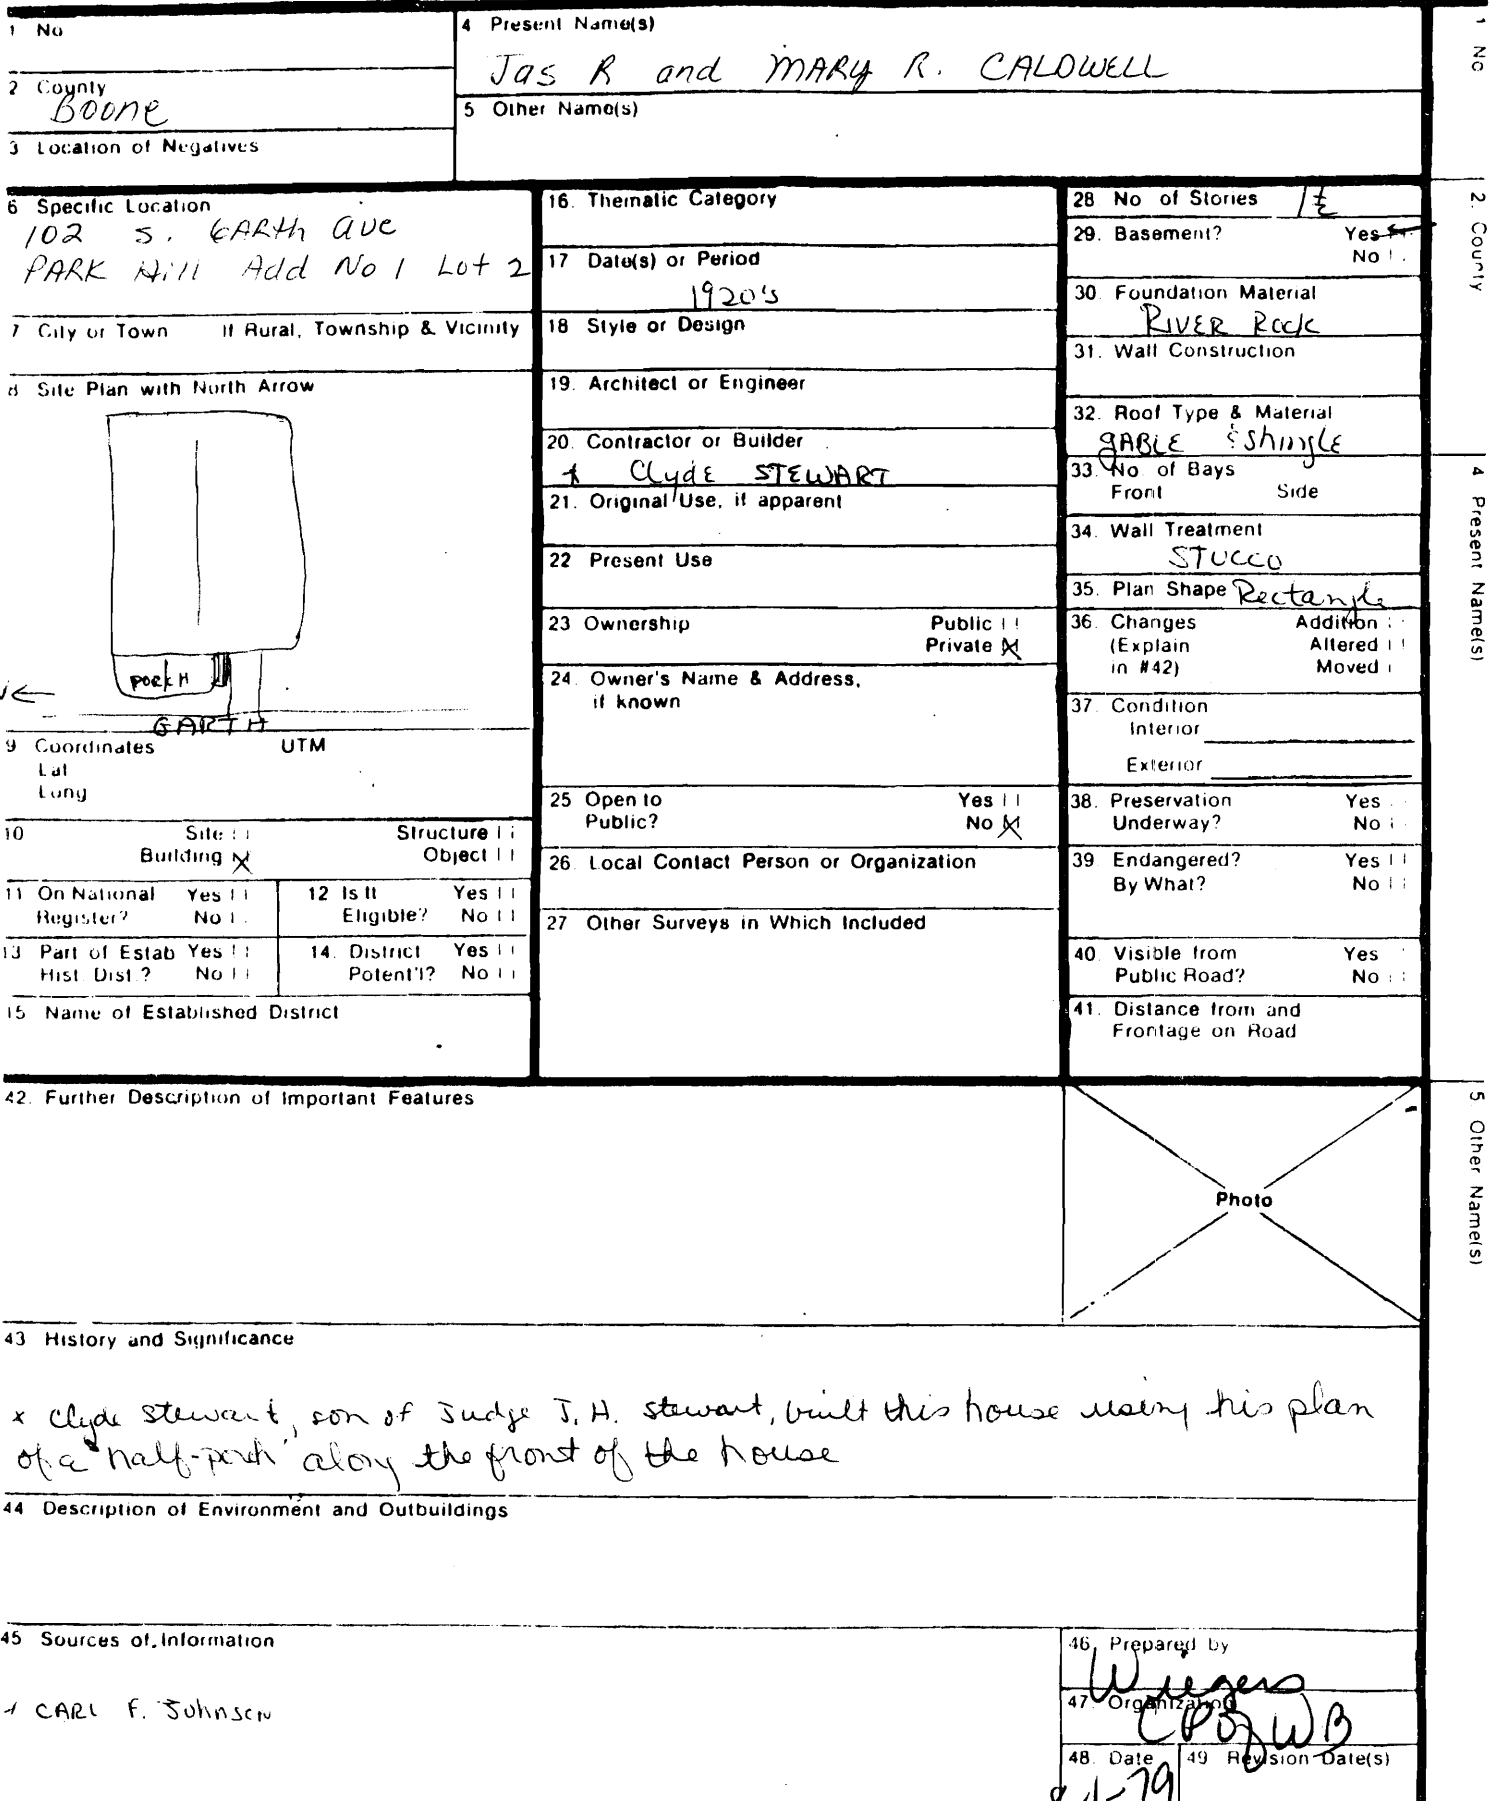 1 No
4 Present Name(s)
Jas R and MARY R. CALDWELL
2 County
Boone
5 Other Name(s)
3 Location of Negatives
6 Specific Location
102 S. GARth ave
PARK Hill Add No 1 Lot 2
7 City or Town If Rural, Township & Vicinity
8 Site Plan with North Arrow
PORCH
GARTH
9 Coordinates UTM
Lat
Long
10 Site
Structure
Building X
Object
11 On National Register? Yes No
12 Is It Eligible? Yes No
13 Part of Estab Hist. Dist.? Yes No
14. District Potent'l? Yes No
15 Name of Established District
16. Thematic Category
17 Date(s) or Period
1920's
18 Style or Design
19. Architect or Engineer
20. Contractor or Builder
x Clyde STEWART
21. Original Use, if apparent
22 Present Use
23 Ownership Public
Private X
24. Owner's Name & Address,
if known
25 Open to Yes
Public? No X
26. Local Contact Person or Organization
27 Other Surveys in Which Included
28 No of Stories 1½
29. Basement? Yes
No
30. Foundation Material
RIVER Rock
31. Wall Construction
32. Roof Type & Material
gABLE & ShinglE
33. No. of Bays
Front Side
34. Wall Treatment
STUCCO
35. Plan Shape Rectangle
36. Changes Addition
(Explain Altered
in #42) Moved
37. Condition
Interior
Exterior
38. Preservation Yes
Underway? No
39 Endangered? Yes
By What? No
40. Visible from Yes
Public Road? No
41. Distance from and
Frontage on Road
42. Further Description of Important Features
Photo
43 History and Significance
x Clyde Stewart, son of Judge J. H. Stewart, built this house using his plan
of a "half-porch" along the front of the house
44 Description of Environment and Outbuildings
45 Sources of Information
x CARL F. Johnson
46. Prepared by
Wiegers
47. Organization
48. Date
49 Revision Date(s)
1 No
2. County
4 Present Name(s)
5 Other Name(s)